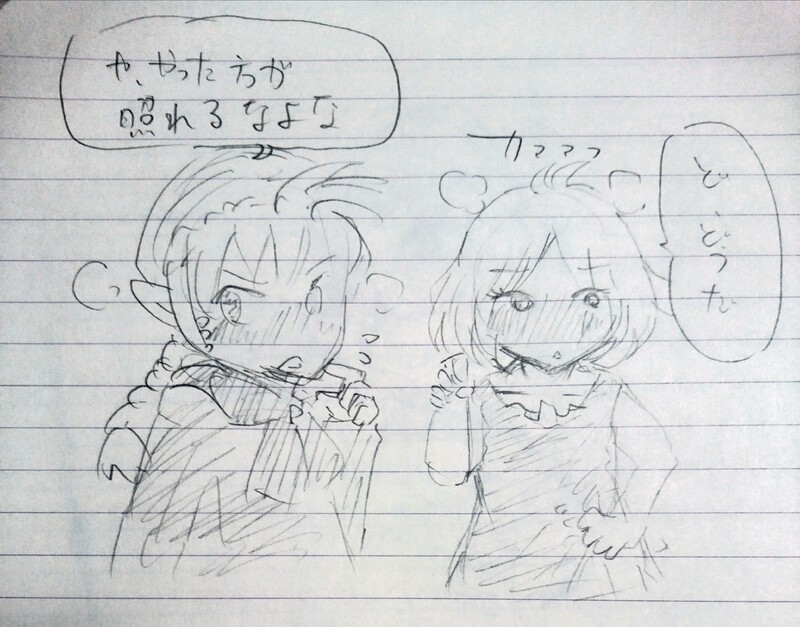 ど、どうだ
カァァァ
や、やった方が
照れるなよな